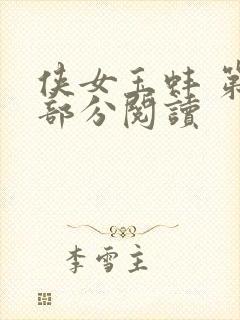 侠女玉蚌 第
部分閱讀
李雪主